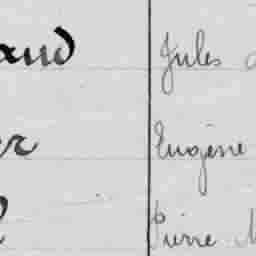 aud Jules
er Eugène
Pierre